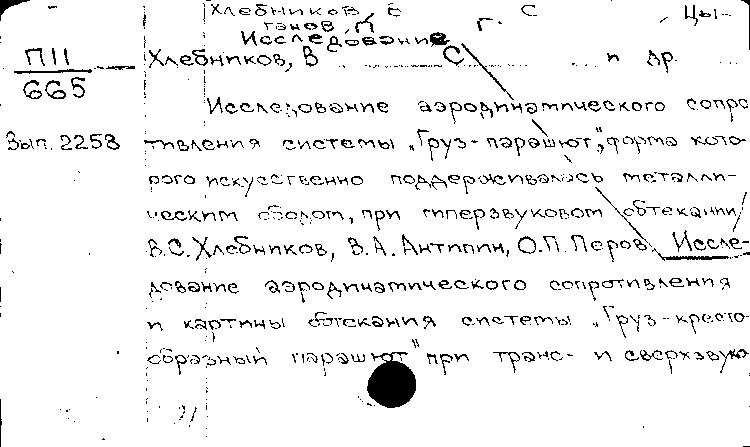 Хлебников, С Цы-
ганов, П Г.
Исследование
П11 Хлебников, В С и др.
665
Исследование аэродинамического сопро
Вып. 2258 тивления системы „Груз-парашют", форма кото-
рого искусственно поддерживалась металли-
ческим ободом, при гиперзвуковом обтекании/
В.С. Хлебников, В.А. Антипин, О.П. Перов. Иссле-
дование аэродинамического сопротивления
и картины обтекания системы „Груз-кресто-
образный парашют" при транс- и сверхзвуко